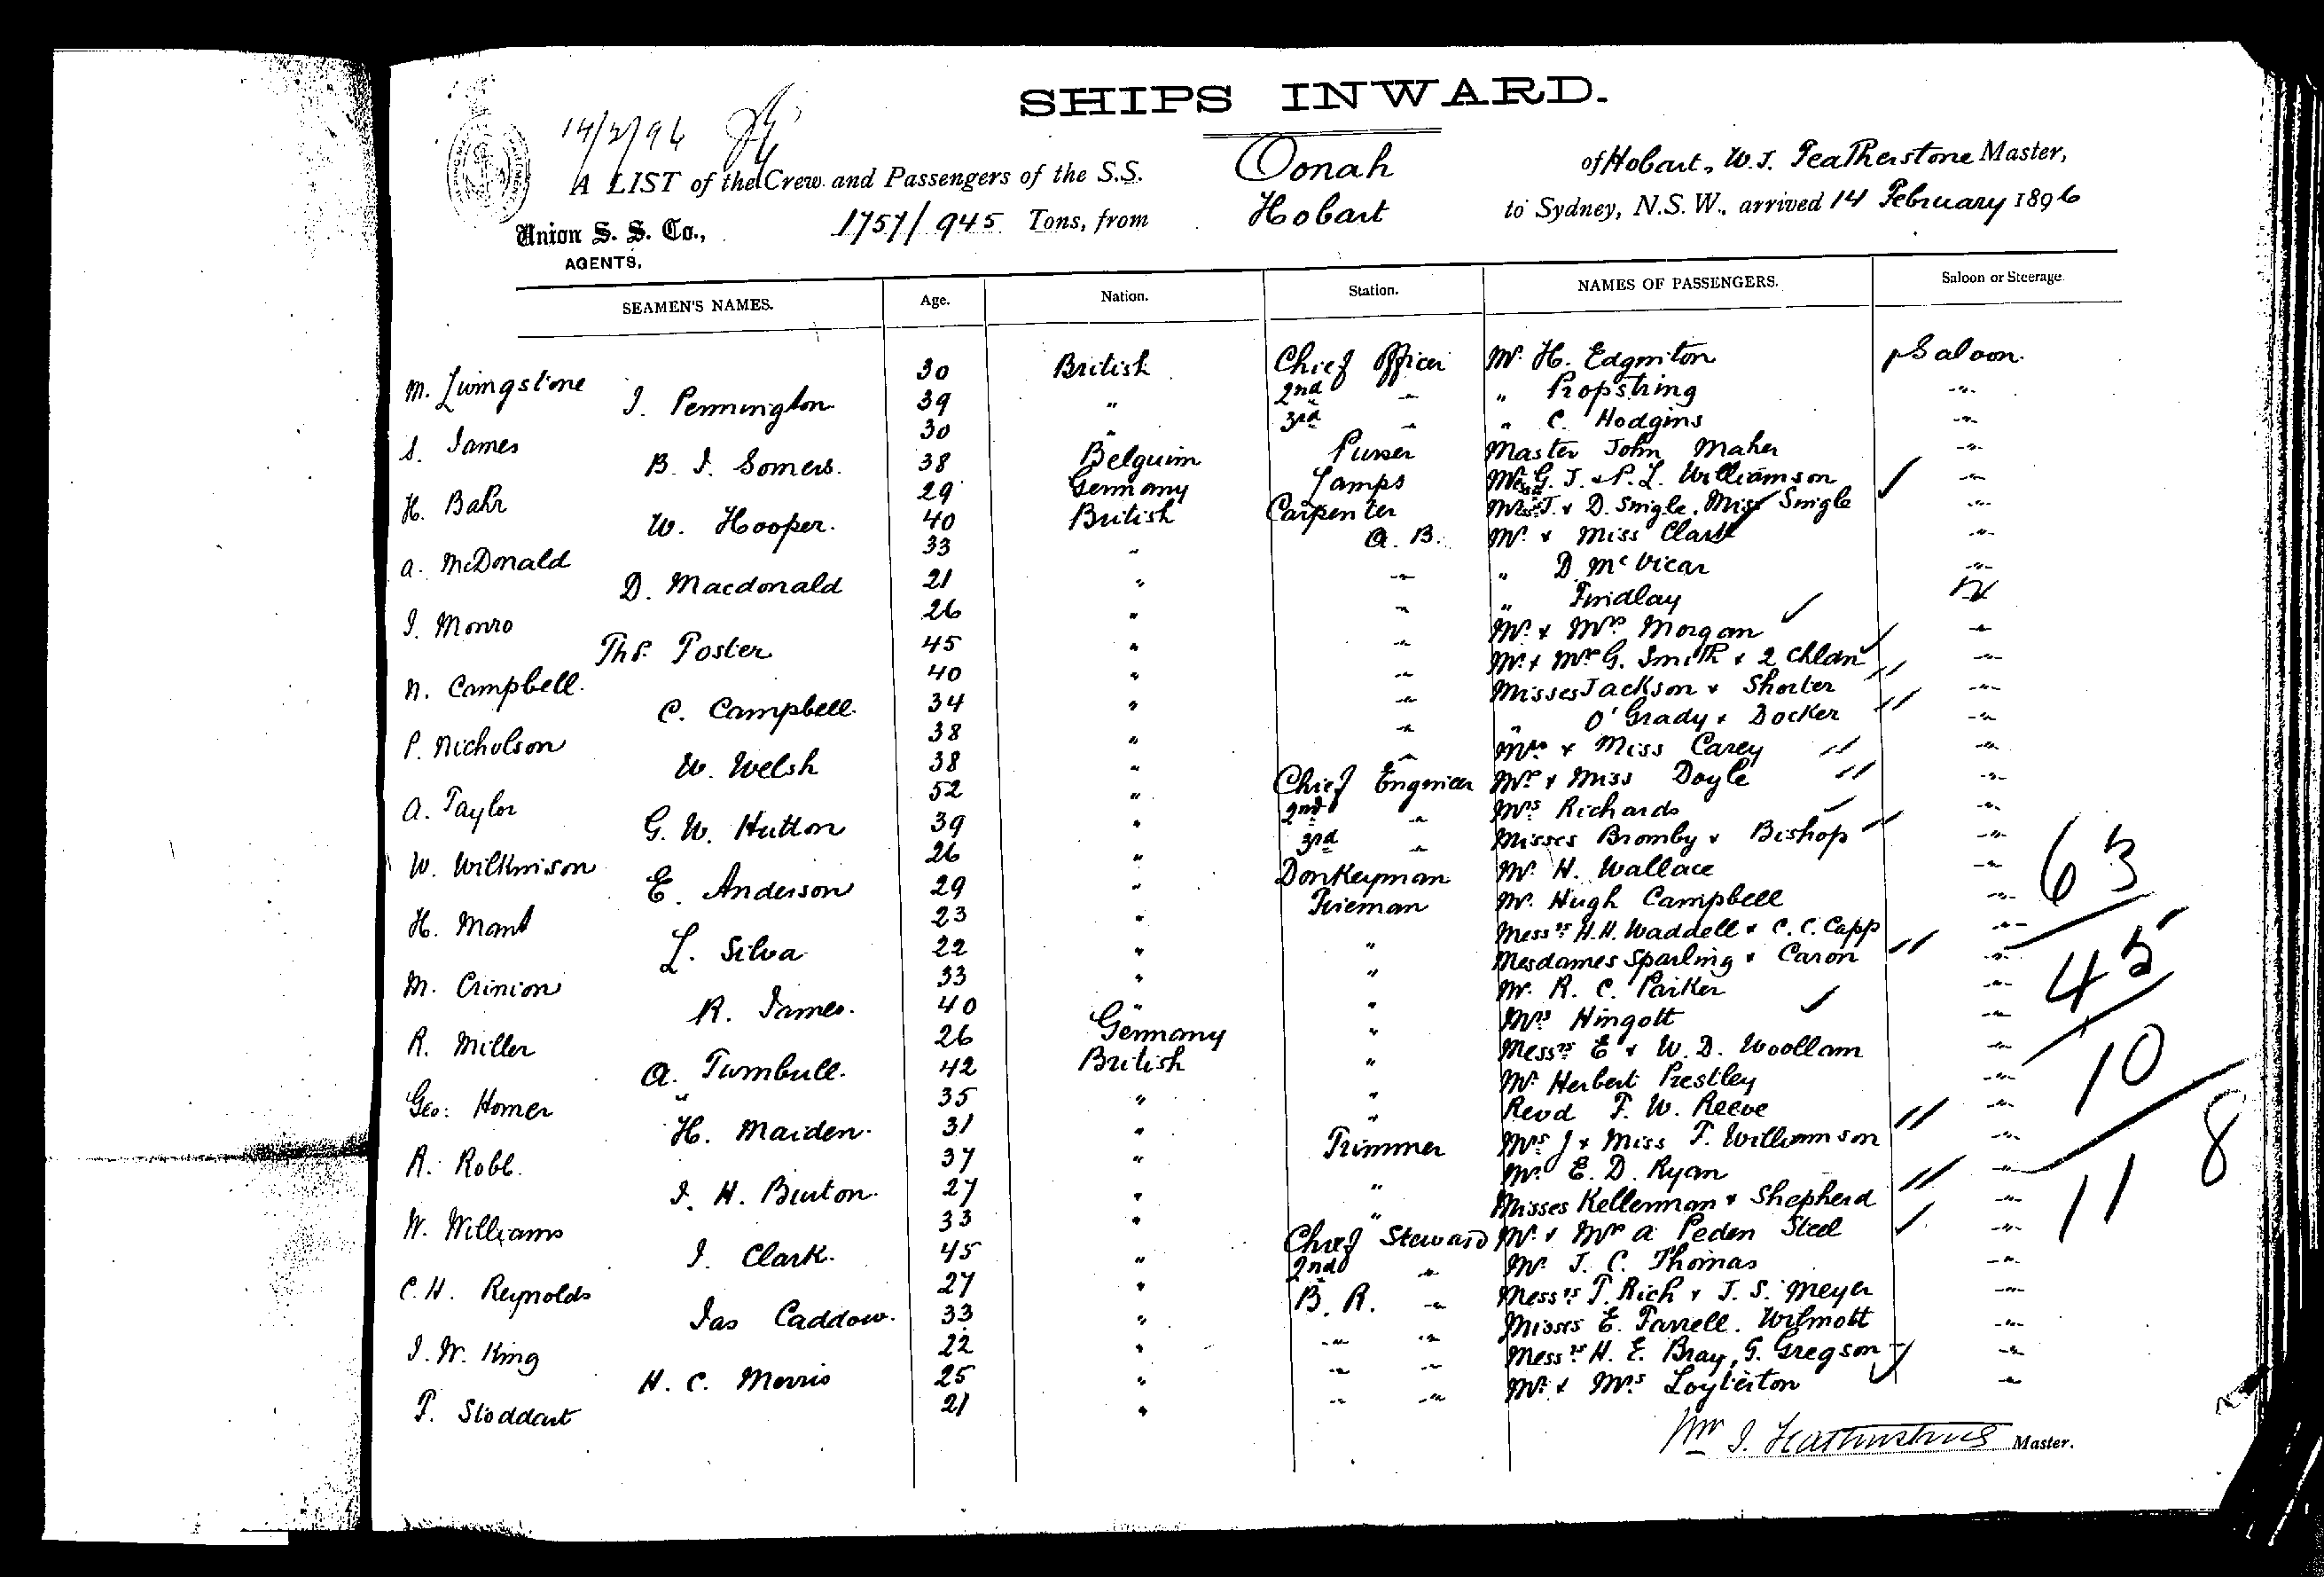 SHIPS INWARD.
14/2/96
A LIST of the Crew and Passengers of the S.S. Oonah of Hobart, W. J. Featherstone Master,
Union S. S. Co., 1757/945 Tons, from Hobart to Sydney, N.S.W., arrived 14 February 1896
AGENTS,
SEAMEN'S NAMES. Age. Nation. Station. NAMES OF PASSENGERS. Saloon or Steerage.
M. Livingstone 30 British Chief Officer Mr. H. Edgmiton Saloon
J. Pennington 39 " 2nd " " Propsting "
S. James 30 " 3rd " " C. Hodgins "
B. J. Somers. 38 Belguim Purser Master John Maher "
H. Bahr 29 Germany Lamps G. J. & P. L. Williamson "
W. Hooper. 40 British Carpenter J. & D. Smigle. Miss Smigle "
A. McDonald 33 " A. B. Mr. & Miss Clark "
D. Macdonald 21 " " " D McVicar "
J. Monro 26 " " " Findlay "
Thos. Foster 45 " " Mr. & Mrs Morgan "
N. Campbell. 40 " " Mr. & Mrs G. Smith & 2 Chldn "
C. Campbell 34 " " Misses Jackson & Shorter "
P. Nicholson 38 " " " O'Grady & Docker "
W. Welsh 38 " " Mrs & Miss Carey "
A. Taylor 52 " Chief Engineer Mrs & Miss Doyle "
G. W. Hutton 39 " 2nd " Mrs Richards "
W. Wilkinson 26 " 3rd " Misses Bromby & Bishop "
E. Anderson 29 " Donkeyman Mr H. Wallace "
H. Mant 23 " Fireman Mr. Hugh Campbell "
L. Silva 22 " " Messrs H. H. Waddell & C. C. Capp "
M. Crinion 33 " " Mesdames Sparling & Caron "
R. James. 40 " " Mr. R. C. Parker "
R. Miller 26 Germany " Mrs Hingott "
A. Turnbull. 42 British " Messrs E & W. D. Woollam "
Geo: Homer 35 " " Mr Herbert Prestley "
" H. Maiden. 31 " " Revd F. W. Reeve "
R. Robb. 37 " Trimmer Mrs J & Miss F. Williamson "
J. H. Burton. 27 " " Mr E. D. Ryan "
W. Williams 33 " " Misses Kellerman & Shepherd "
J. Clark. 45 " Chief Steward Mr. & Mrs A Peden Steel "
C. H. Reynolds 27 " 2nd " Mr J. C. Thomas "
Jas Caddow. 33 " B. R. " Messrs T. Rich & J. S. Meyer "
J. W. King 22 " " " Misses E. Farrell. Wilmott "
H. C. Morris 25 " " " Messrs H. E. Bray, G. Gregson "
T. Stoddart 21 " " " Mr & Mrs Loyterton "
63
45
10
11 8
Wm J. Featherstone Master.